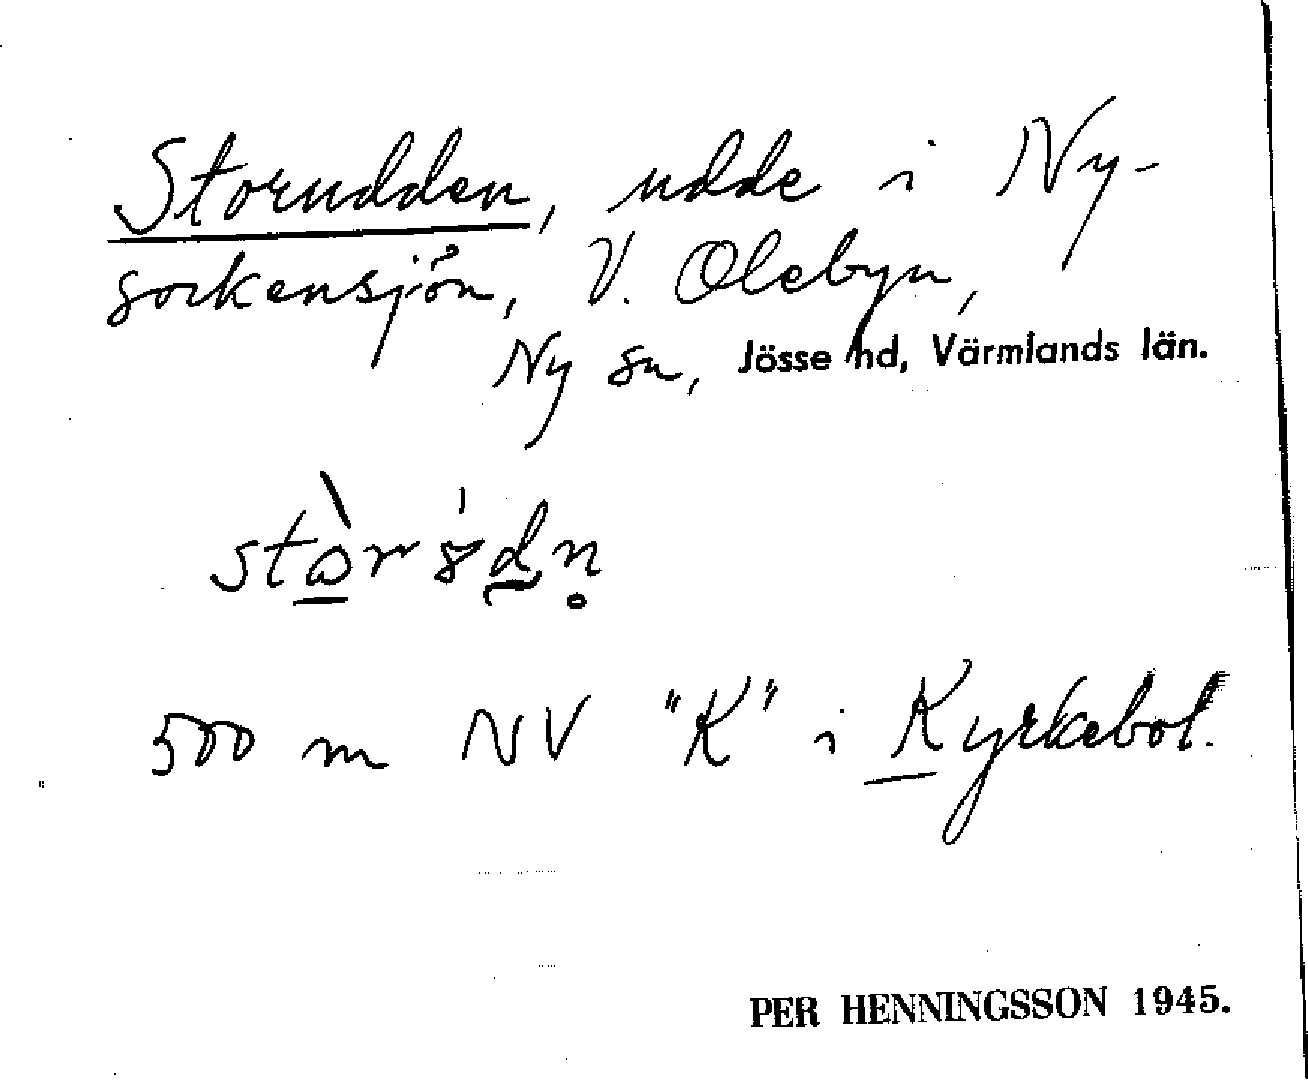 Storudden, udde i Ny-
sockensjön, V. Olebyn,
Ny sn, Jösse hd, Värmlands län.
500 m NV "K" i Kyrkebol.
PER HENNINGSSON 1945.